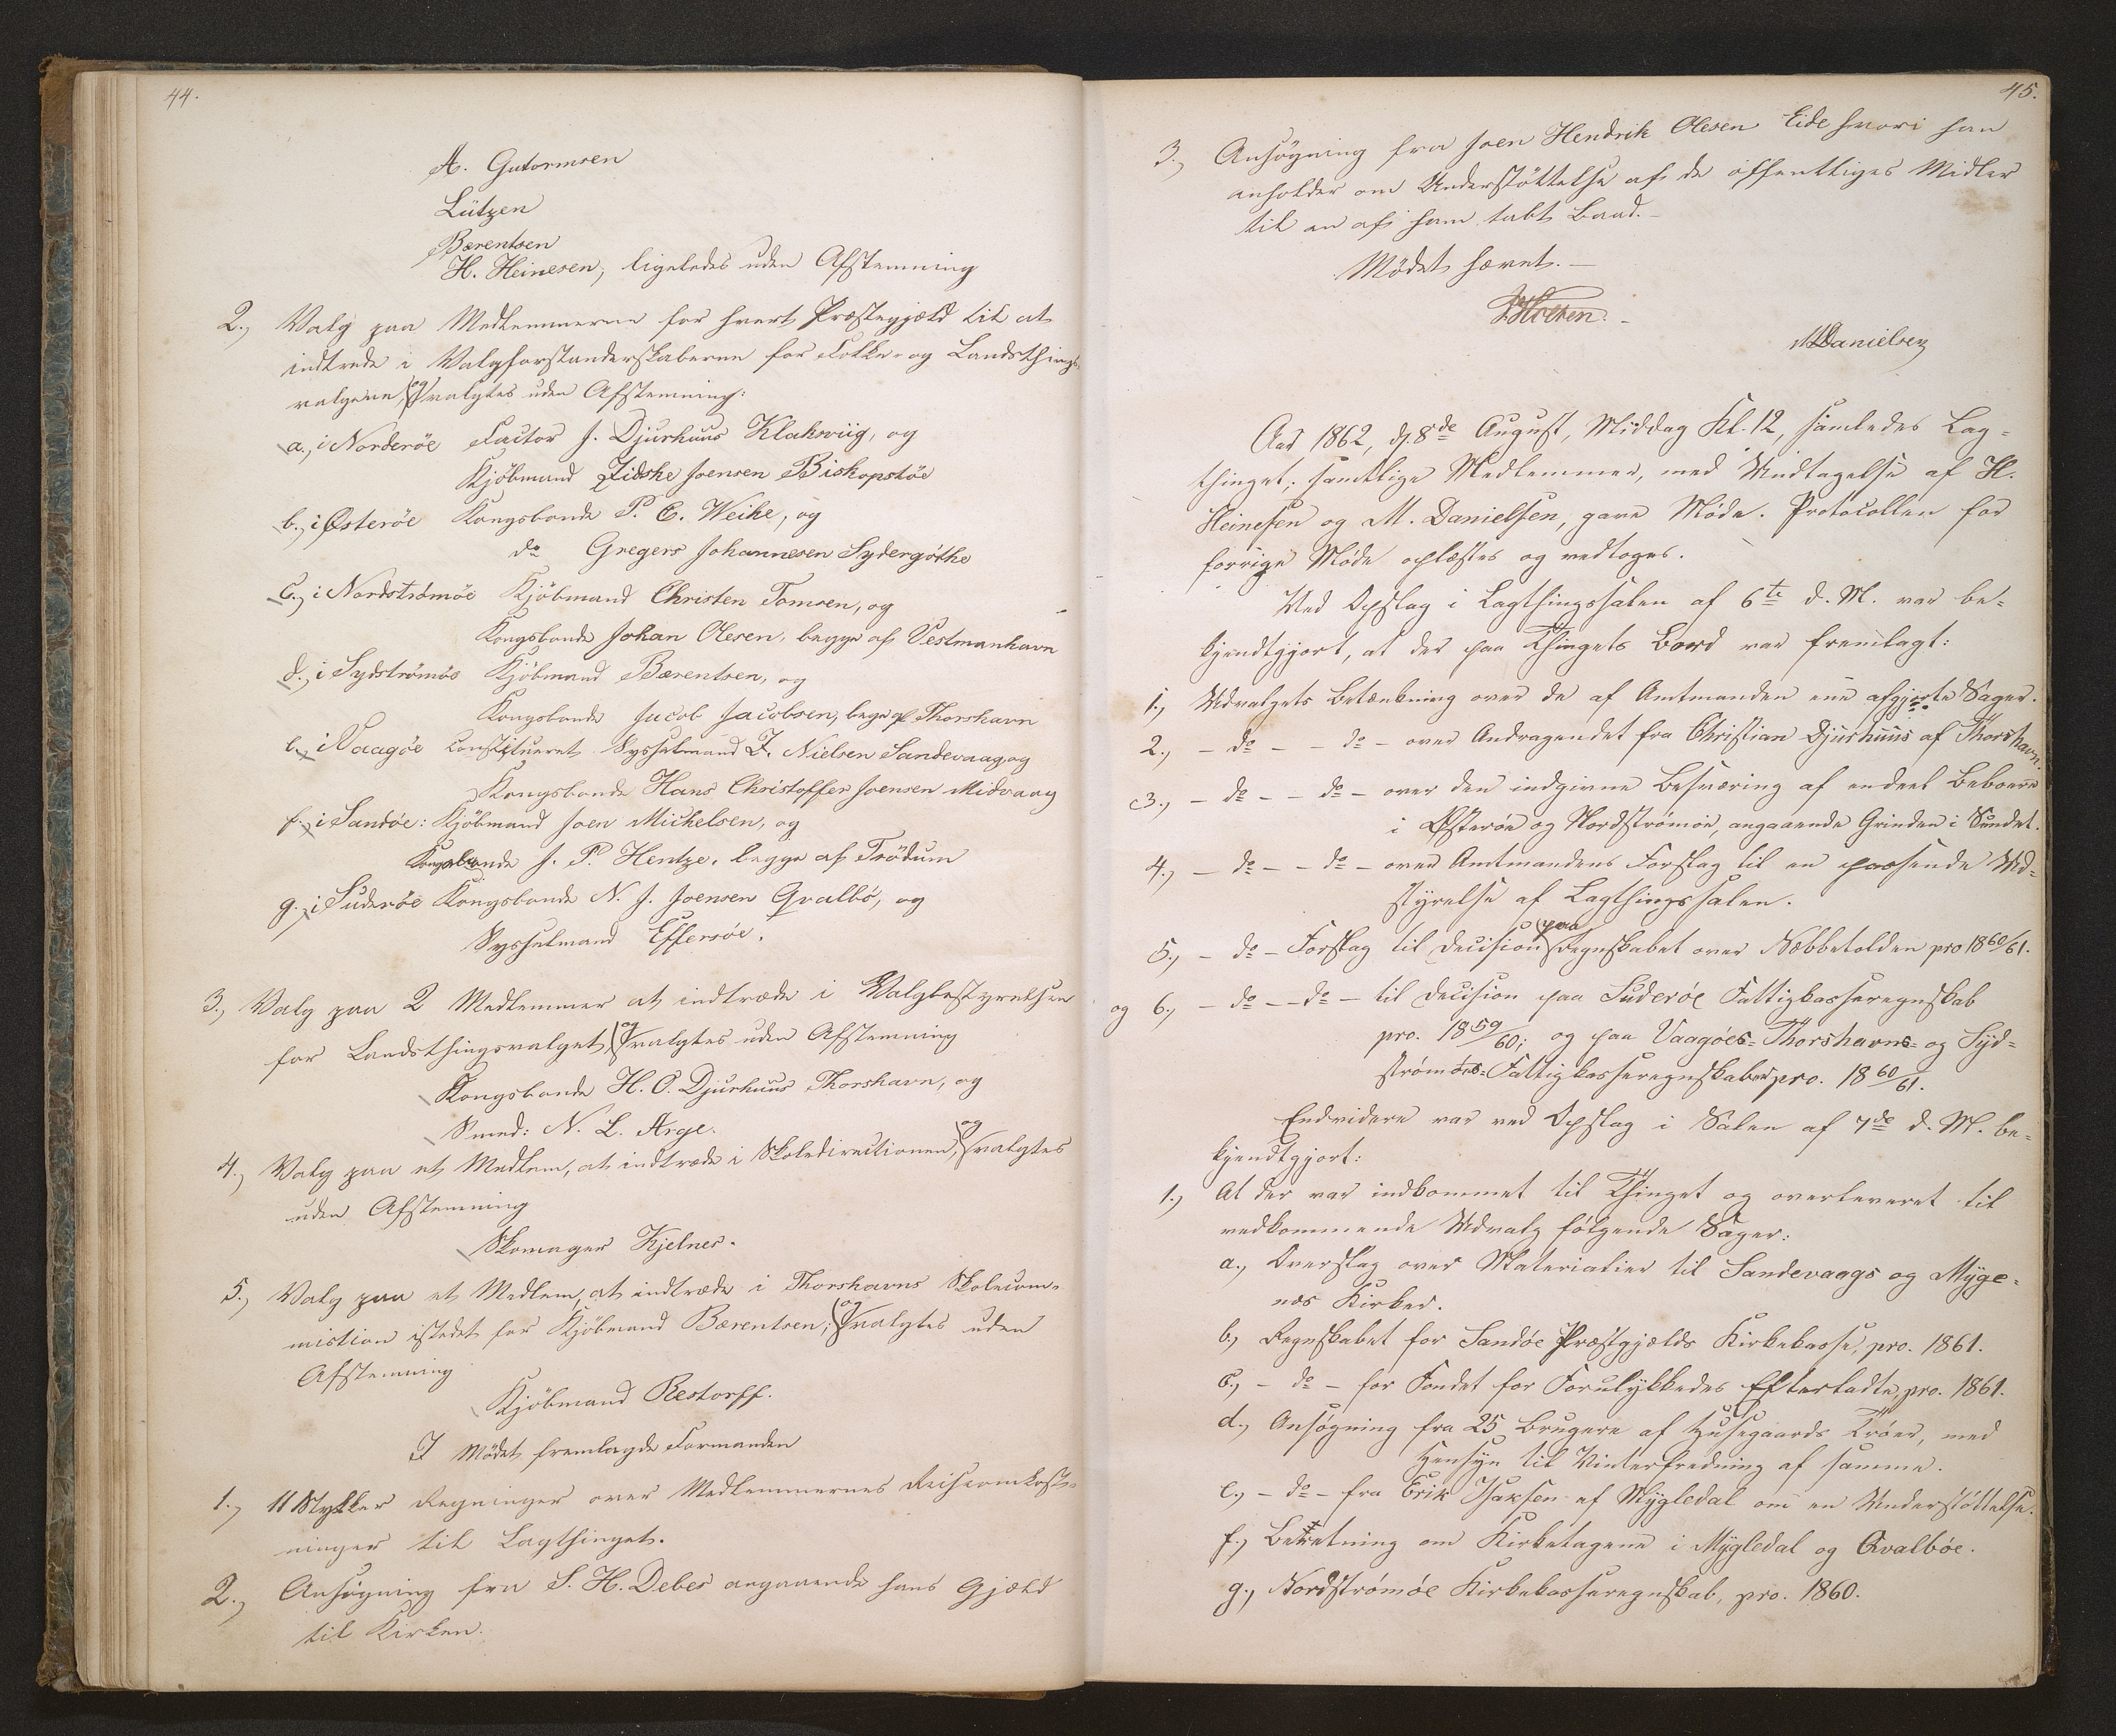 44.
A. Gutormsen
Lützen
Bærentsen
H. Heinesen, ligeledes uden Afstemning
2., Valg paa Medlemmerne for hvert Præstegjæld til at
indtræde i Valgforstanderskaberne for Folke- og Landsthings-
valgene, og valgtes uden Afstemning:
a., i Norderöe Factor J. Djurhuus Klaksviig, og
Kjöbmand Zidske Joensen Biskopstöe
b., i Østeröe Kongsbonde P. C. Weihe, og
do Gregers Johannesen Sydergöthe
c., i Nordströmöe Kjöbmand Christen Tomsen, og
Kongsbonde Johan Olesen, begge af Vestmanhavn
d., i Sydströmöe Kjöbmand Bærentsen, og
Kongsbonde Jacob Jacobsen, begge af Thorshavn
e., i Vaagöe constitueret Sysselmand J. Nielsen Sandevaag, og
Kongsbonde Hans Christoffer Joensen Midvaag
f., i Sandöe: Kjöbmand Joen Michelsen, og
Kongsbonde J. P. Hentze, begge af Trödum
g., i Suderöe Kongsbonde N. J. Joensen Qvalbö, og
Sysselmand Effersöe.
3., Valg paa 2 Medlemmer at indtræde i Valgbestyrelsen
for Landsthingsvalget, og valgtes uden Afstemning
Kongsbonde H. O. Djurhuus Thorshavn, og
Smed: N. L. Arge.
4., Valg paa et Medlem, at indtræde i Skoledirectionen, og valgtes
uden Afstemning
Skomager Kjelnes.
5., Valg paa et Medlem, at indtræde i Thorshavns Skolecom-
mission istedet for Kjöbmand Bærentsen; og valgtes uden
Afstemning
Kjöbmand Restorff.
I Mödet fremlagde Formanden
1., 11 Stykker Regninger over Medlemmernes Reiseomkost-
ninger til Lagthinget.
2., Ansögning fra S. H. Debes angaaende hans Gjæld
til Kirken.
45.
3., Ansögning fra Joen Hendrik Olesen Eide hvori han
anholder om Understöttelse af de offentliges Midler
til en af ham tabt Baad.
Mödet hævet.
MDanielsen
Aar 1862, d. 8de August, Middag Kl. 12, samledes Lag-
thinget; samtlige Medlemmer, med Undtagelse af H.
Heinesen og M. Danielsen, gave Møde. Protocollen for
forrige Møde oplæstes og vedtoges.
Ved Opslag i Lagthingssalen af 6te d. M. var be-
kjendtgjort, at der paa Thingets Bord var fremlagt:
1., Udvalgets Betænkning over de af Amtmanden ene afgjorte Sager.
2., - do - - do - over Andragendet fra Christian Djurhuus af Thorshavn.
3., - do - - do - over den indgivne Besværing af endeel Beboere
i Østerøe og Nordstrømøe, angaaende Grinden i Sundet.
4., - do - - do - over Amtmandens Forslag til en passende Ud-
styrelse af Lagthingssalen.
5., - do - Forslag til Decision paa Regnskabet over Næbbetolden pro 1860/61.
og 6., - do - - do - til Decision paa Suderøe Fattigkasseregnskab
pro. 1859/60; og paa Vaagøes- Thorshavns- og Syd-
strømøes- Fattigkasseregnskaber pro. 1860/61.
Endvidere var ved Opslag i Salen af 7de d. M. be-
kjendtgjort:
1., At der var indkommet til Thinget og overleveret til
vedkommende Udvalg følgende Sager:
a., Overslag over Materialier til Sandevaags og Myge-
næs Kirker.
b., Regnskabet for Sandøe Præstgjælds Kirkekasse, pro. 1861.
c., - do - for Fondet for Forulykkedes Efterladte, pro. 1861.
d., Ansøgning fra 25 Brugere af Husegaards Trøer, med
Hensyn til Vinterfredning af samme.
e., - do - fra Erik Isaksen af Mygledal om en Understøttelse.
f., Beretning om Kirketagene i Mygledal og Qvalbøe.
g., Nordstrømøe Kirkekasseregnskab, pro. 1860.